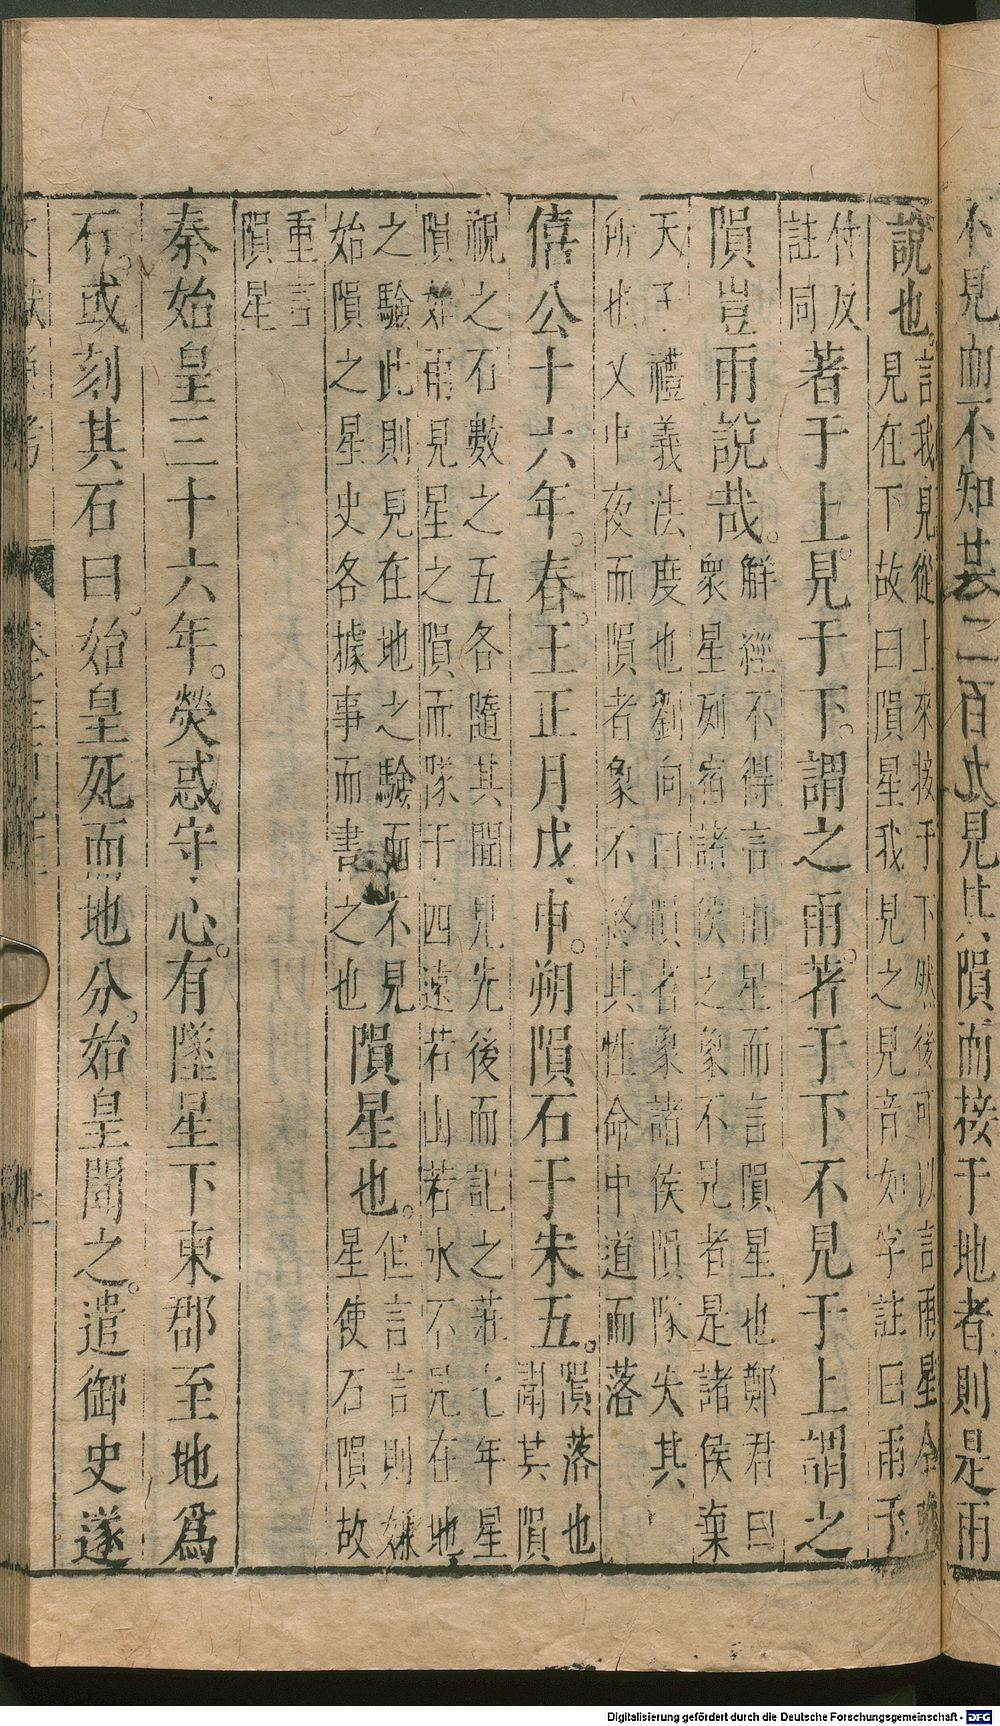 不見而不知其二百也見其隕而接于地者則是雨
說也。言我見從上來接于下然後可以言雨星今
見在下故曰隕星我見之見音如字註曰雨于
付反
註同著于上。見于下。謂之雨。著于下不見于上謂之
隕豈雨說哉。解經不得言雨星而言隕星也鄭君曰
衆星列宿諸侯之象不見者是諸侯棄
天子禮義法度也劉向曰隕者象諸侯隕隊失其
所也又中夜而隕者象不終其性命中道而落
僖公十六年。春。王正月戊申。朔隕石于宋五。隕落也
聞其隕
視之石數之五各隨其聞見先後而記之莊七年星
隕如雨見星之隕而隊于四遠若山若水不見在地
之驗此則見在地之驗而不見
始隕之星史各據事而書之也隕星也。但言言則嫌
星使石隕故
重言
隕星
秦始皇三十六年。熒惑守心。有墜星下東郡至地爲
石。或刻其石曰。始皇死而地分。始皇聞之。遣御史遂
Digitalisierung gefördert durch die Deutsche Forschungsgemeinschaft - DFG